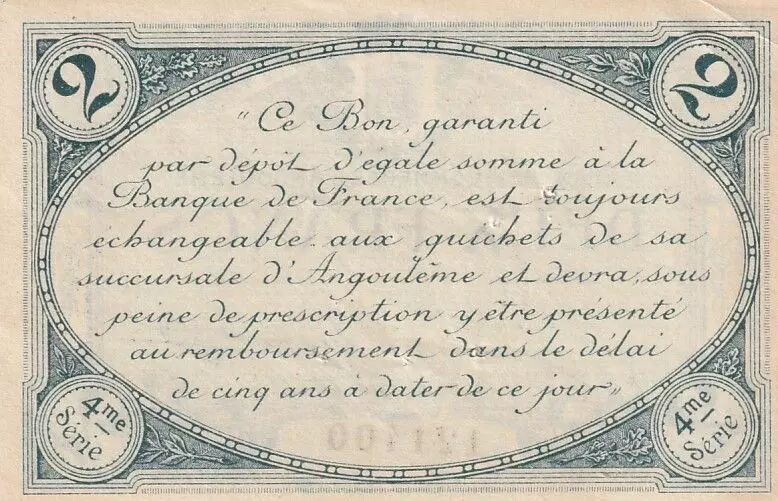 2 2
" Ce Bon, garanti
par dépôt d'égale somme à la
Banque de France, est toujours
échangeable aux guichets de sa
succursale d'Angoulême et devra, sous
peine de prescription y être présenté
au remboursement dans le délai
de cinq ans à dater de ce jour "
4me Série 4me Série